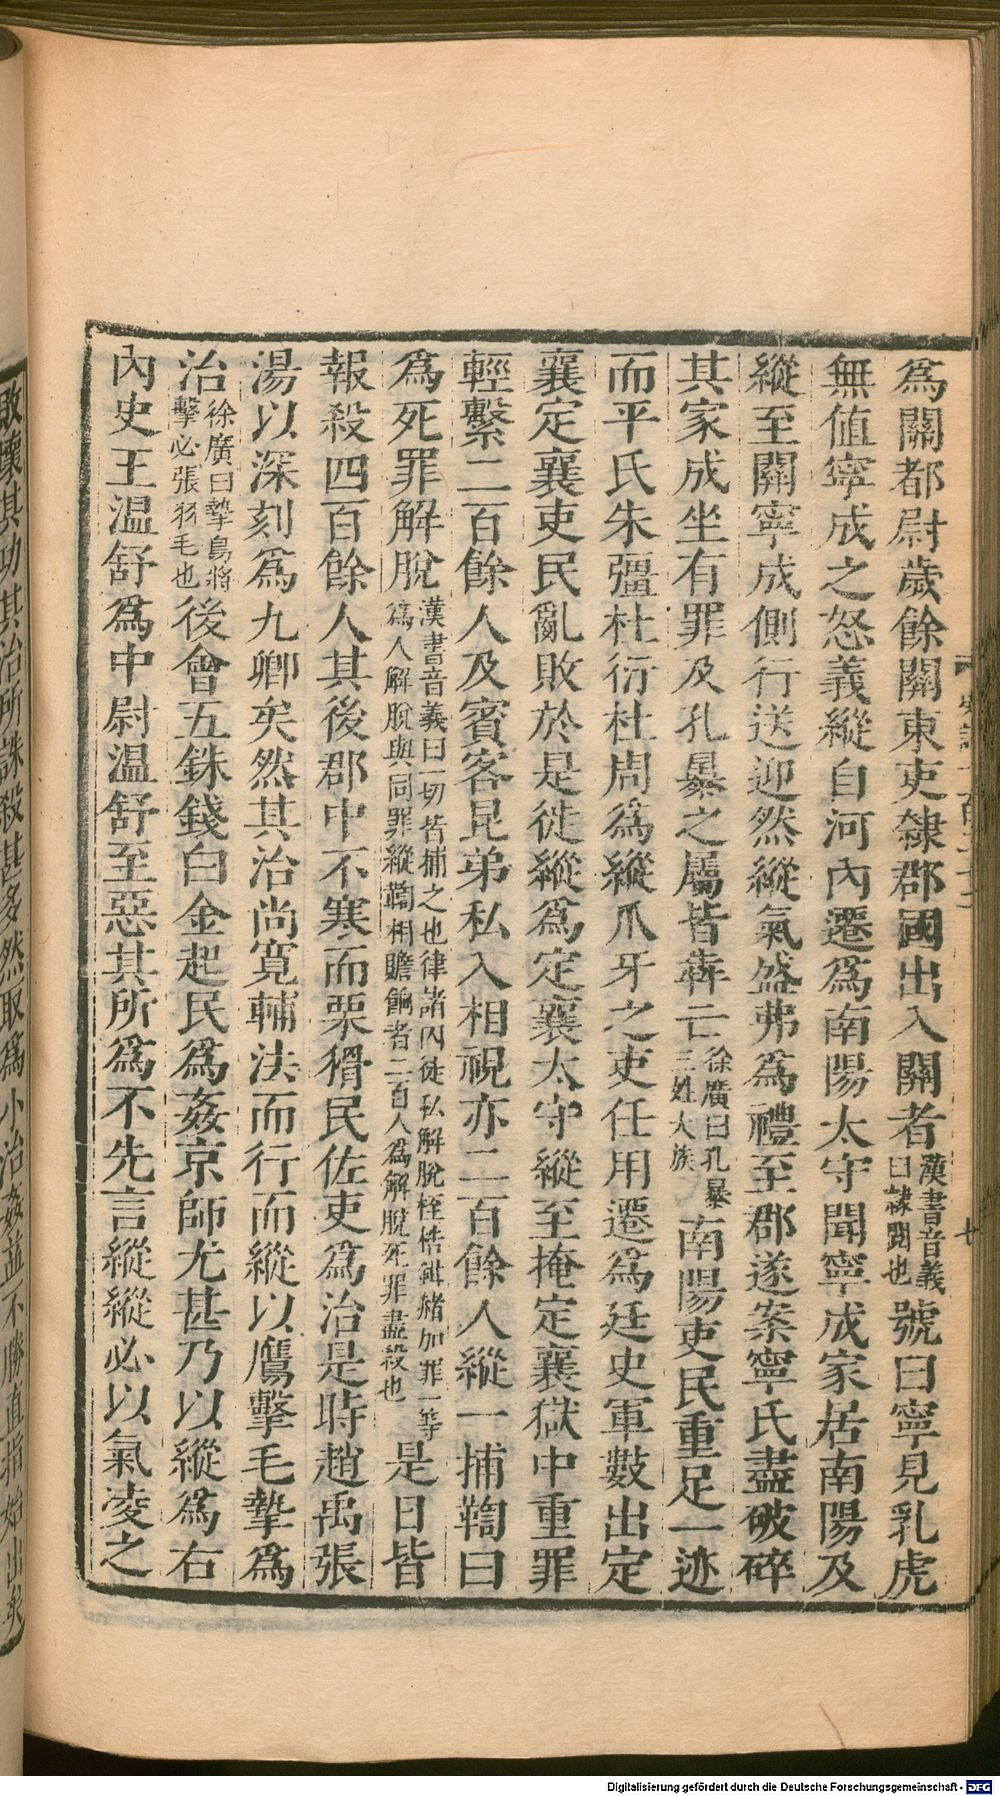 爲關都尉歲餘關東吏隸郡國出入關者漢書音義曰隸閱也號曰寧見乳虎
無值寧成之怒義縱自河內遷爲南陽太守聞寧成家居南陽及
縱至關寧成側行送迎然縱氣盛弗爲禮至郡遂案寧氏盡破碎
其家成坐有罪及孔暴之屬皆犇亡徐廣曰孔暴三姓大族南陽吏民重足一迹
而平氏朱彊杜衍杜周爲縱爪牙之吏任用遷爲廷史軍數出定
襄定襄吏民亂敗於是徙縱爲定襄太守縱至掩定襄獄中重罪
輕繫二百餘人及賓客昆弟私入相視亦二百餘人縱一捕鞫曰
爲死罪解脫漢書音義曰一切皆捕之也律諸囚徒私解脫桎梏鉗赭加罪一等爲人解脫與同罪縱鞫相贍餉者二百人爲解脫死罪盡殺也是日皆
報殺四百餘人其後郡中不寒而栗猾民佐吏爲治是時趙禹張
湯以深刻爲九卿矣然其治尚寬輔法而行而縱以鷹擊毛摯爲
治徐廣曰摯鳥將擊必張羽毛也後會五銖錢白金起民爲姦京師尤甚乃以縱爲右
內史王溫舒爲中尉溫舒至惡其所爲不先言縱縱必以氣凌之
敗壞其功其治所誅殺甚多然取爲小治姦益不勝直指始出矣
七
Digitalisierung gefördert durch die Deutsche Forschungsgemeinschaft - DFG